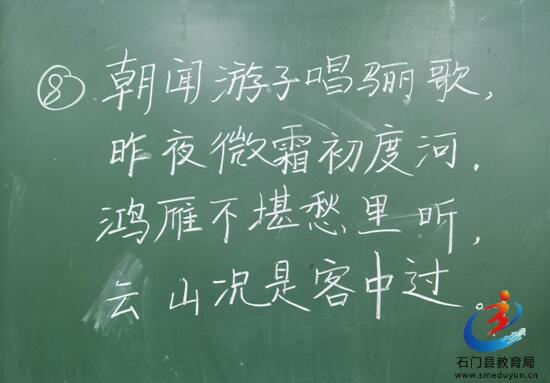 ⑧ 朝闻游子唱骊歌,
昨夜微霜初度河.
鸿雁不堪愁里听,
云山况是客中过
石门县教育局
www.smeduyun.cn